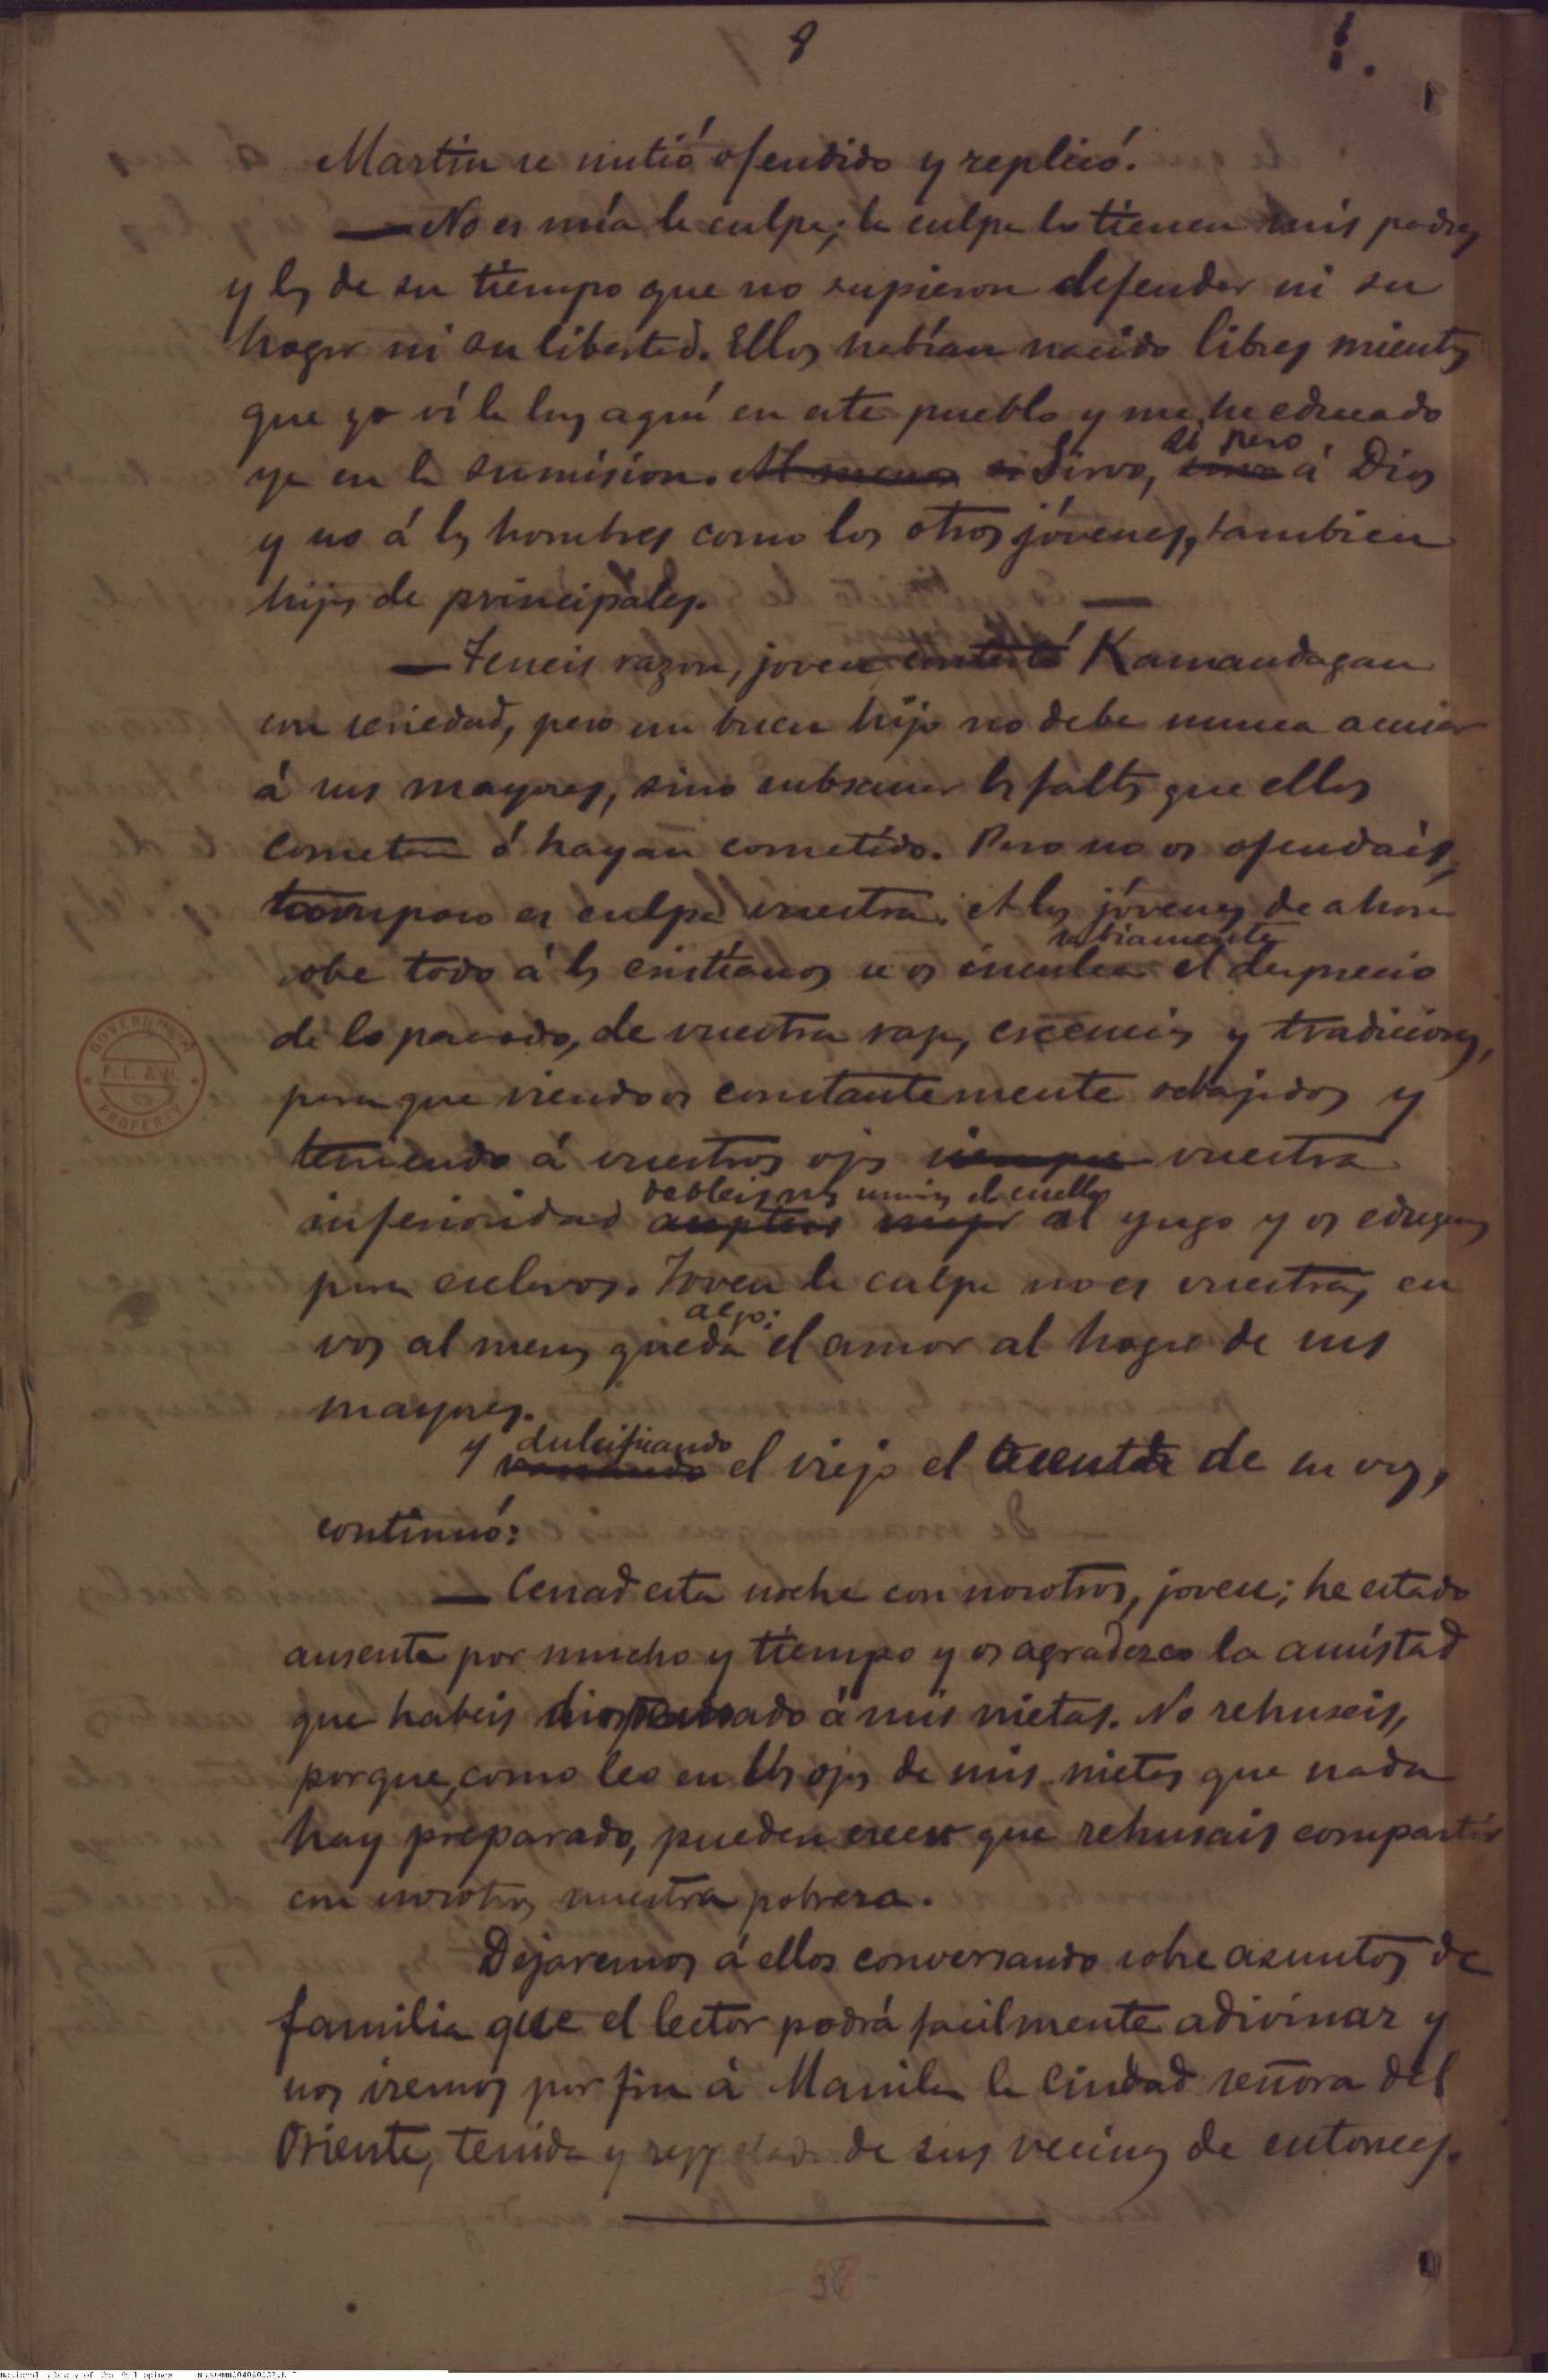 8
Martin se sintió ofendido y replicó.
— No es mía la culpa; la culpa la tienen mis padres
y los de su tiempo que no supieron defender ni su
hogar ni su libertad. Ellos habían nacido libres mientras
que yo ví la luz aquí en este pueblo y me he educado
sí pero
ya en la sumision. Al menos si Sirvo, sino á Dios
y no á los hombres como los otros jóvenes, tambien
hijos de principales. —
— Teneis razon, joven contestó Kamandagan
con seriedad, pero un buen hijo no debe nunca acusar
á sus mayores, sino subsanar las faltas que ellos
cometen ó hayan cometido. Pero no os ofendais,
tampoco es culpa vuestra. A los jóvenes de ahora
sabiamente
sobre todo á los cristianos se os inculca el desprecio
de lo pasado, de vuestra raza, creencias y tradiciones,
para que viendoos constantemente rebajados y
teniendo á vuestros ojos siempre vuestra
dobleis mas el cuello
inferioridad mejor al yugo y os eduquen
para esclavos. Joven la culpa no es vuestra, en
algo:
vos al menos queda el amor al hogar de sus
mayores.
dulcificando
y el viejo el acento de su voz,
continuó:
— Cenad esta noche con nosotros, joven; he estado
ausente por mucho y tiempo y os agradezco la amistad
que habeis dispensado á mis nietas. No rehuseis,
porque, como leo en los ojos de mis nietas que nada
hay preparado, pueden creer que rehusais compartir
con nosotros nuestra pobreza.
Dejaremos á ellos conversando sobre asuntos de
familia que el lector podrá facilmente adivinar y
nos iremos por fin á Manila la Ciudad señora del
Oriente, temida y respetada de sus vecinos de entonces.
GOVERNMENT
P. L. & M.
PROPERTY
- 38 -